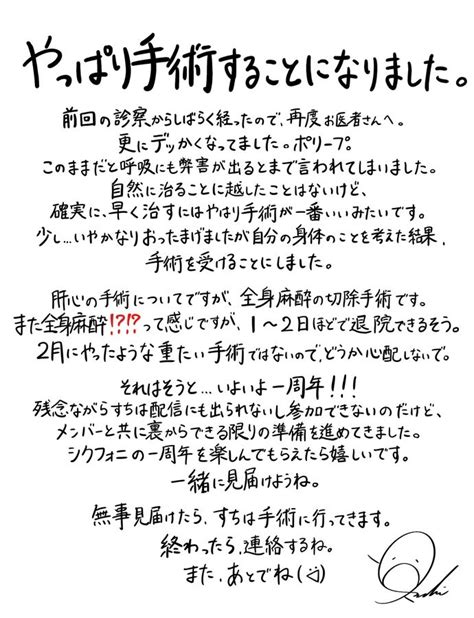 やっぱり手術することになりました。
前回の診察からしばらく経ったので、再度お医者さんへ。
更にデッかくなってました。ポリープ。
このままだと呼吸にも弊害が出るとまで言われてしまいました。
自然に治ることに越したことはないけど、
確実に、早く治すにはやはり手術が一番いいみたいです。
少し…いやかなりおったまげましたが自分の身体のことを考えた結果、
手術を受けることにしました。
肝心の手術についてですが、全身麻酔の切除手術です。
また全身麻酔!?!?って感じですが、1〜2日ほどで退院できるそう。
2月にやったような重たい手術ではないので、どうか心配しないで。
それはそうと…いよいよ一周年!!!
残念ながらすちは配信にも出られないし参加できないのだけど、
メンバーと共に裏からできる限りの準備を進めてきました。
シクフォニの一周年を楽しんでもらえたら嬉しいです。
一緒に見届けようね。
無事見届けたら、すちは手術に行ってきます。
終わったら、連絡するね。
また、あとでね